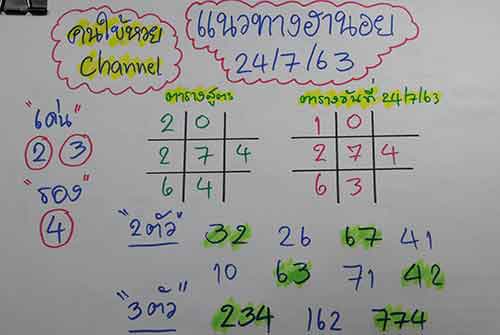 คนใบ้หวย
Channel
แนวทางฮานอย
24/7/63
ตารางสูตร
ตารางวันที่ 24/7/63
"เด่น"
2 3
"รอง"
4
2 0
2 7 4
6 4
1 0
2 7 4
6 3
"2ตัว" 32 26 67 41
10 63 71 42
"3ตัว" 234 162 774